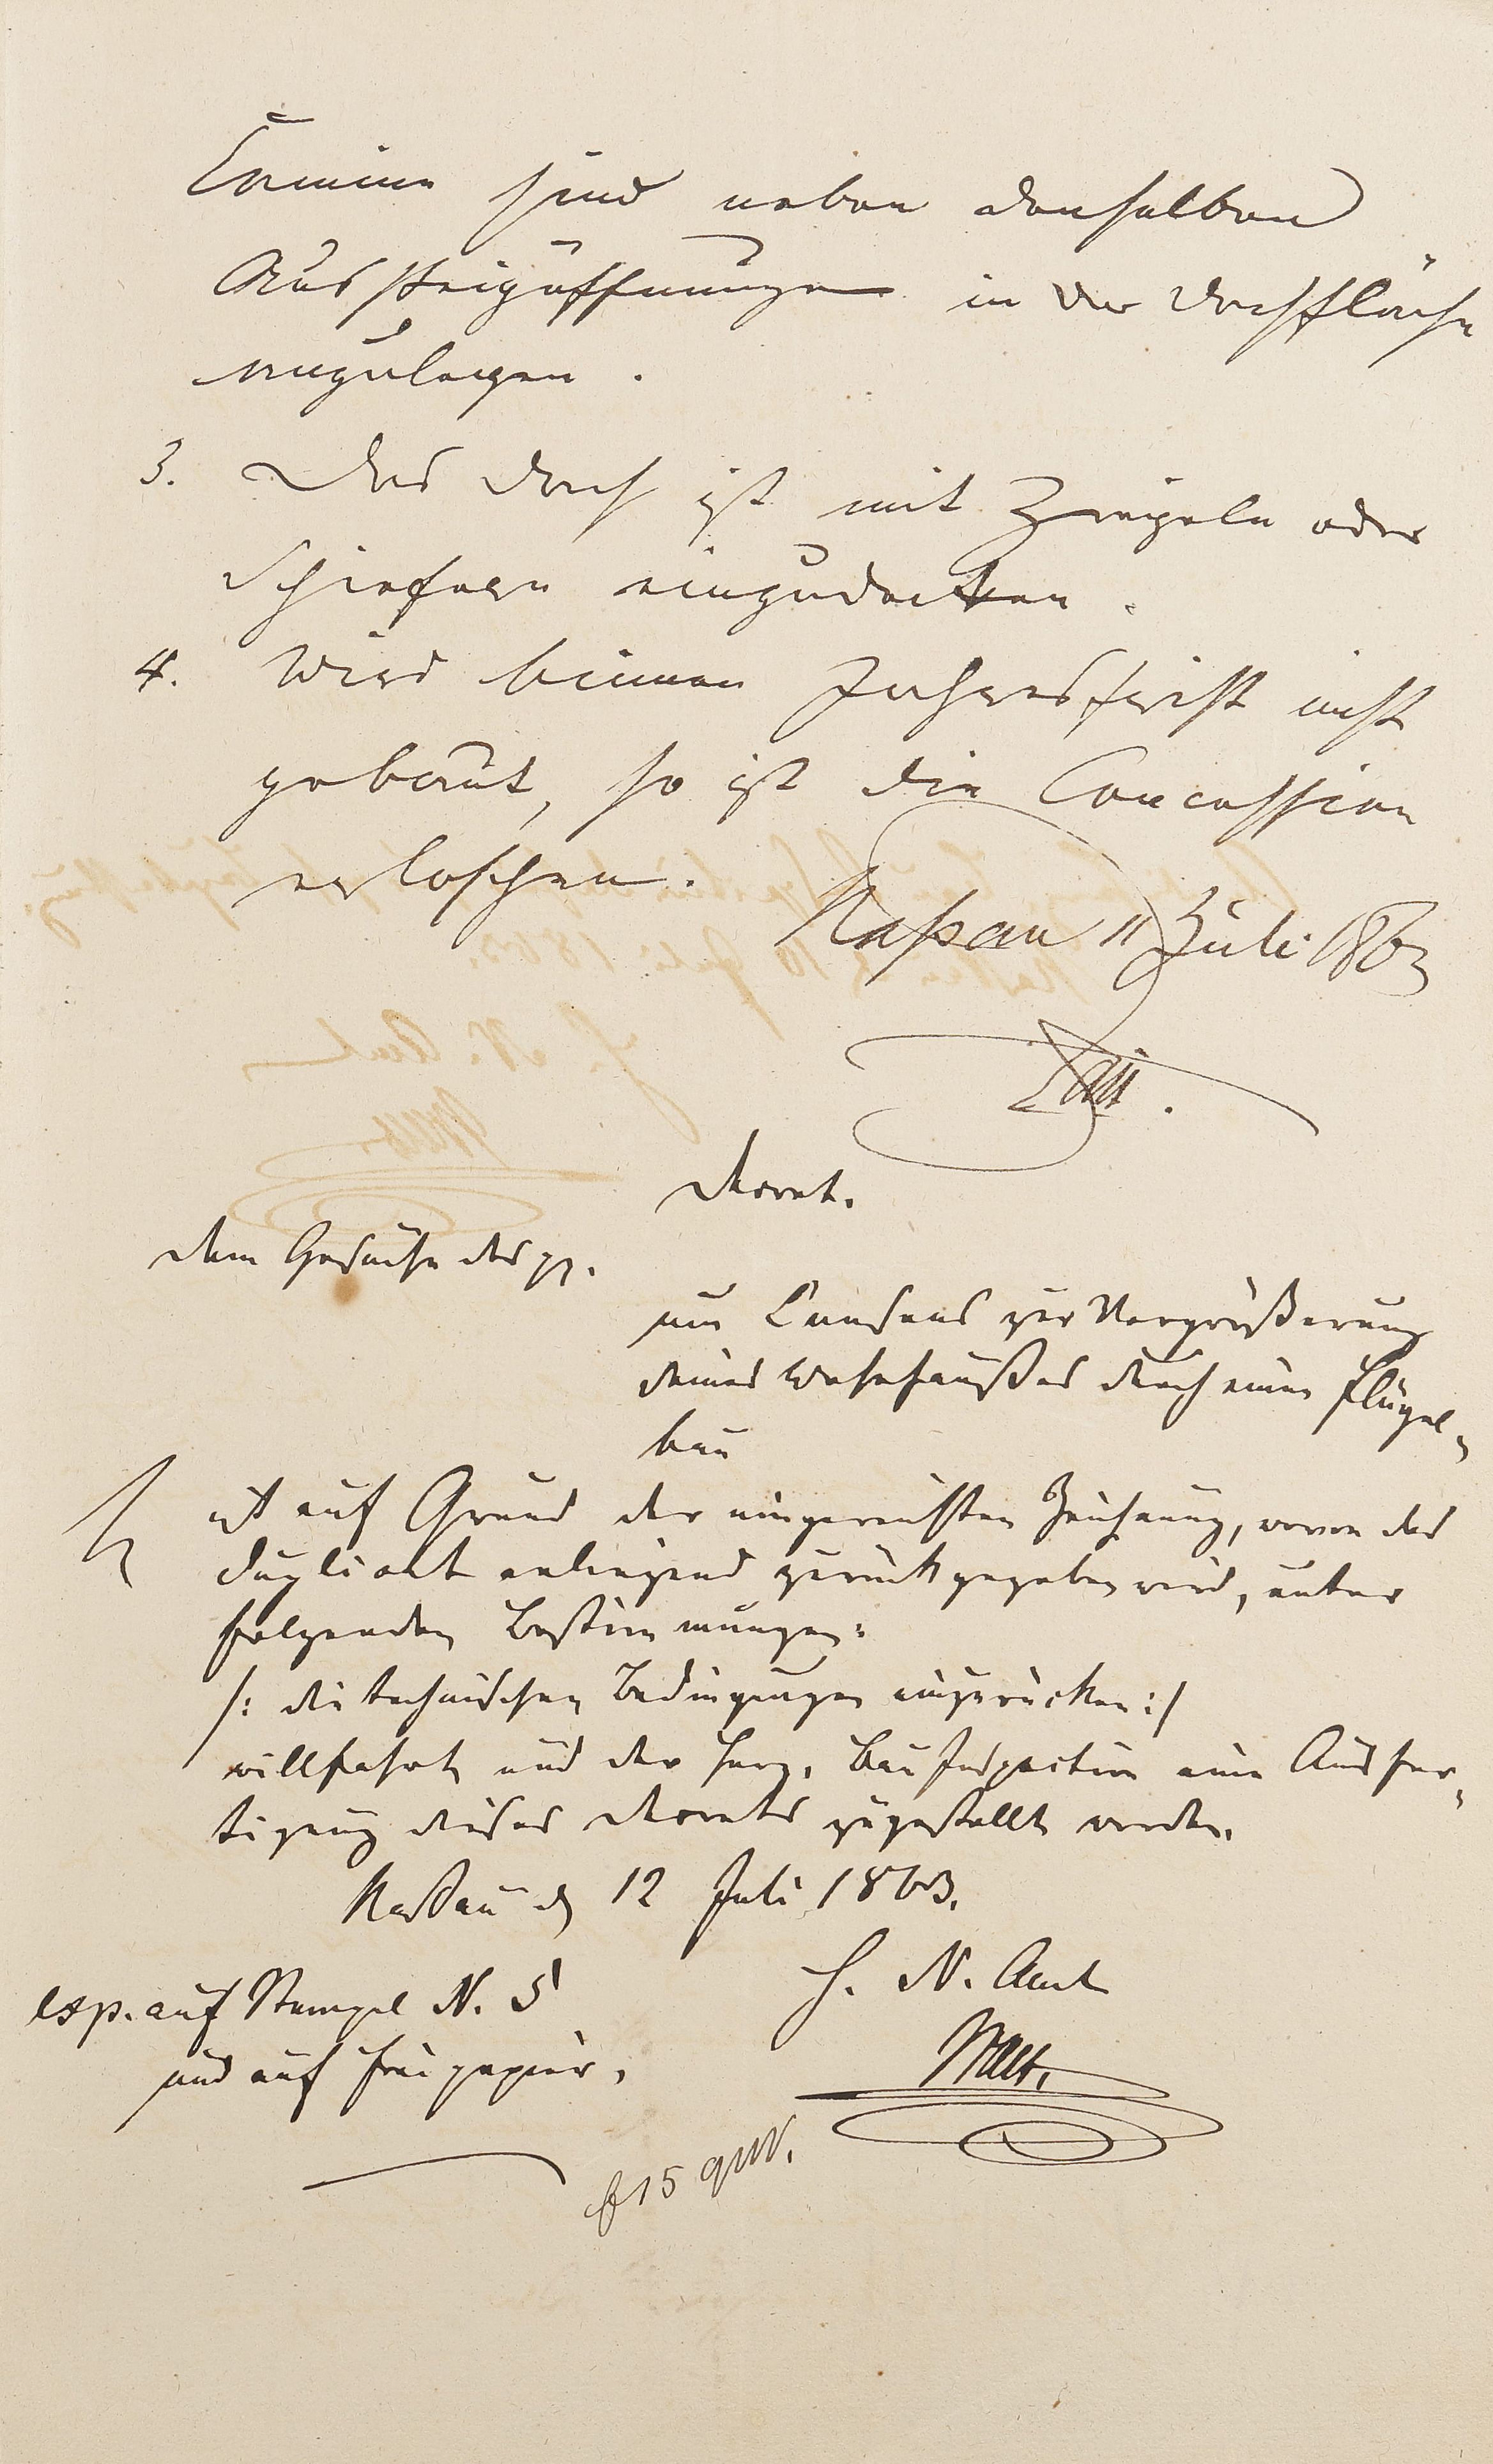 Camine sind neben denselben
Aussteigöffnungen in der Dachfläche
anzulegen.
3. Das Dach ist mit Ziegeln oder
Schiefern einzudecken.
4. Wird binnen Jahresfrist nicht
gebaut, so ist die Concession
erloschen.
Nassau 11 Juli 1863
Decret.
Dem Gesuche des pp.
um Consens zur Vergrößerung
seines Wohnhaußes durch einen Flügel-
bau
ist auf Grund der eingereichten Zeichnung, wovon das
Duplicat anliegend zurückgegeben wird, unter
folgenden Bestimmungen:
/: die technischen Bedingungen einzurücken :/
willfahrt und der Herz. Bau Inspection eine Ausfer-
tigung dieses Decrets zugestellt werden.
Nassau d 12 Juli 1863.
H. N. Amt
exp. auf Stempel N. 5
und auf freipapier.